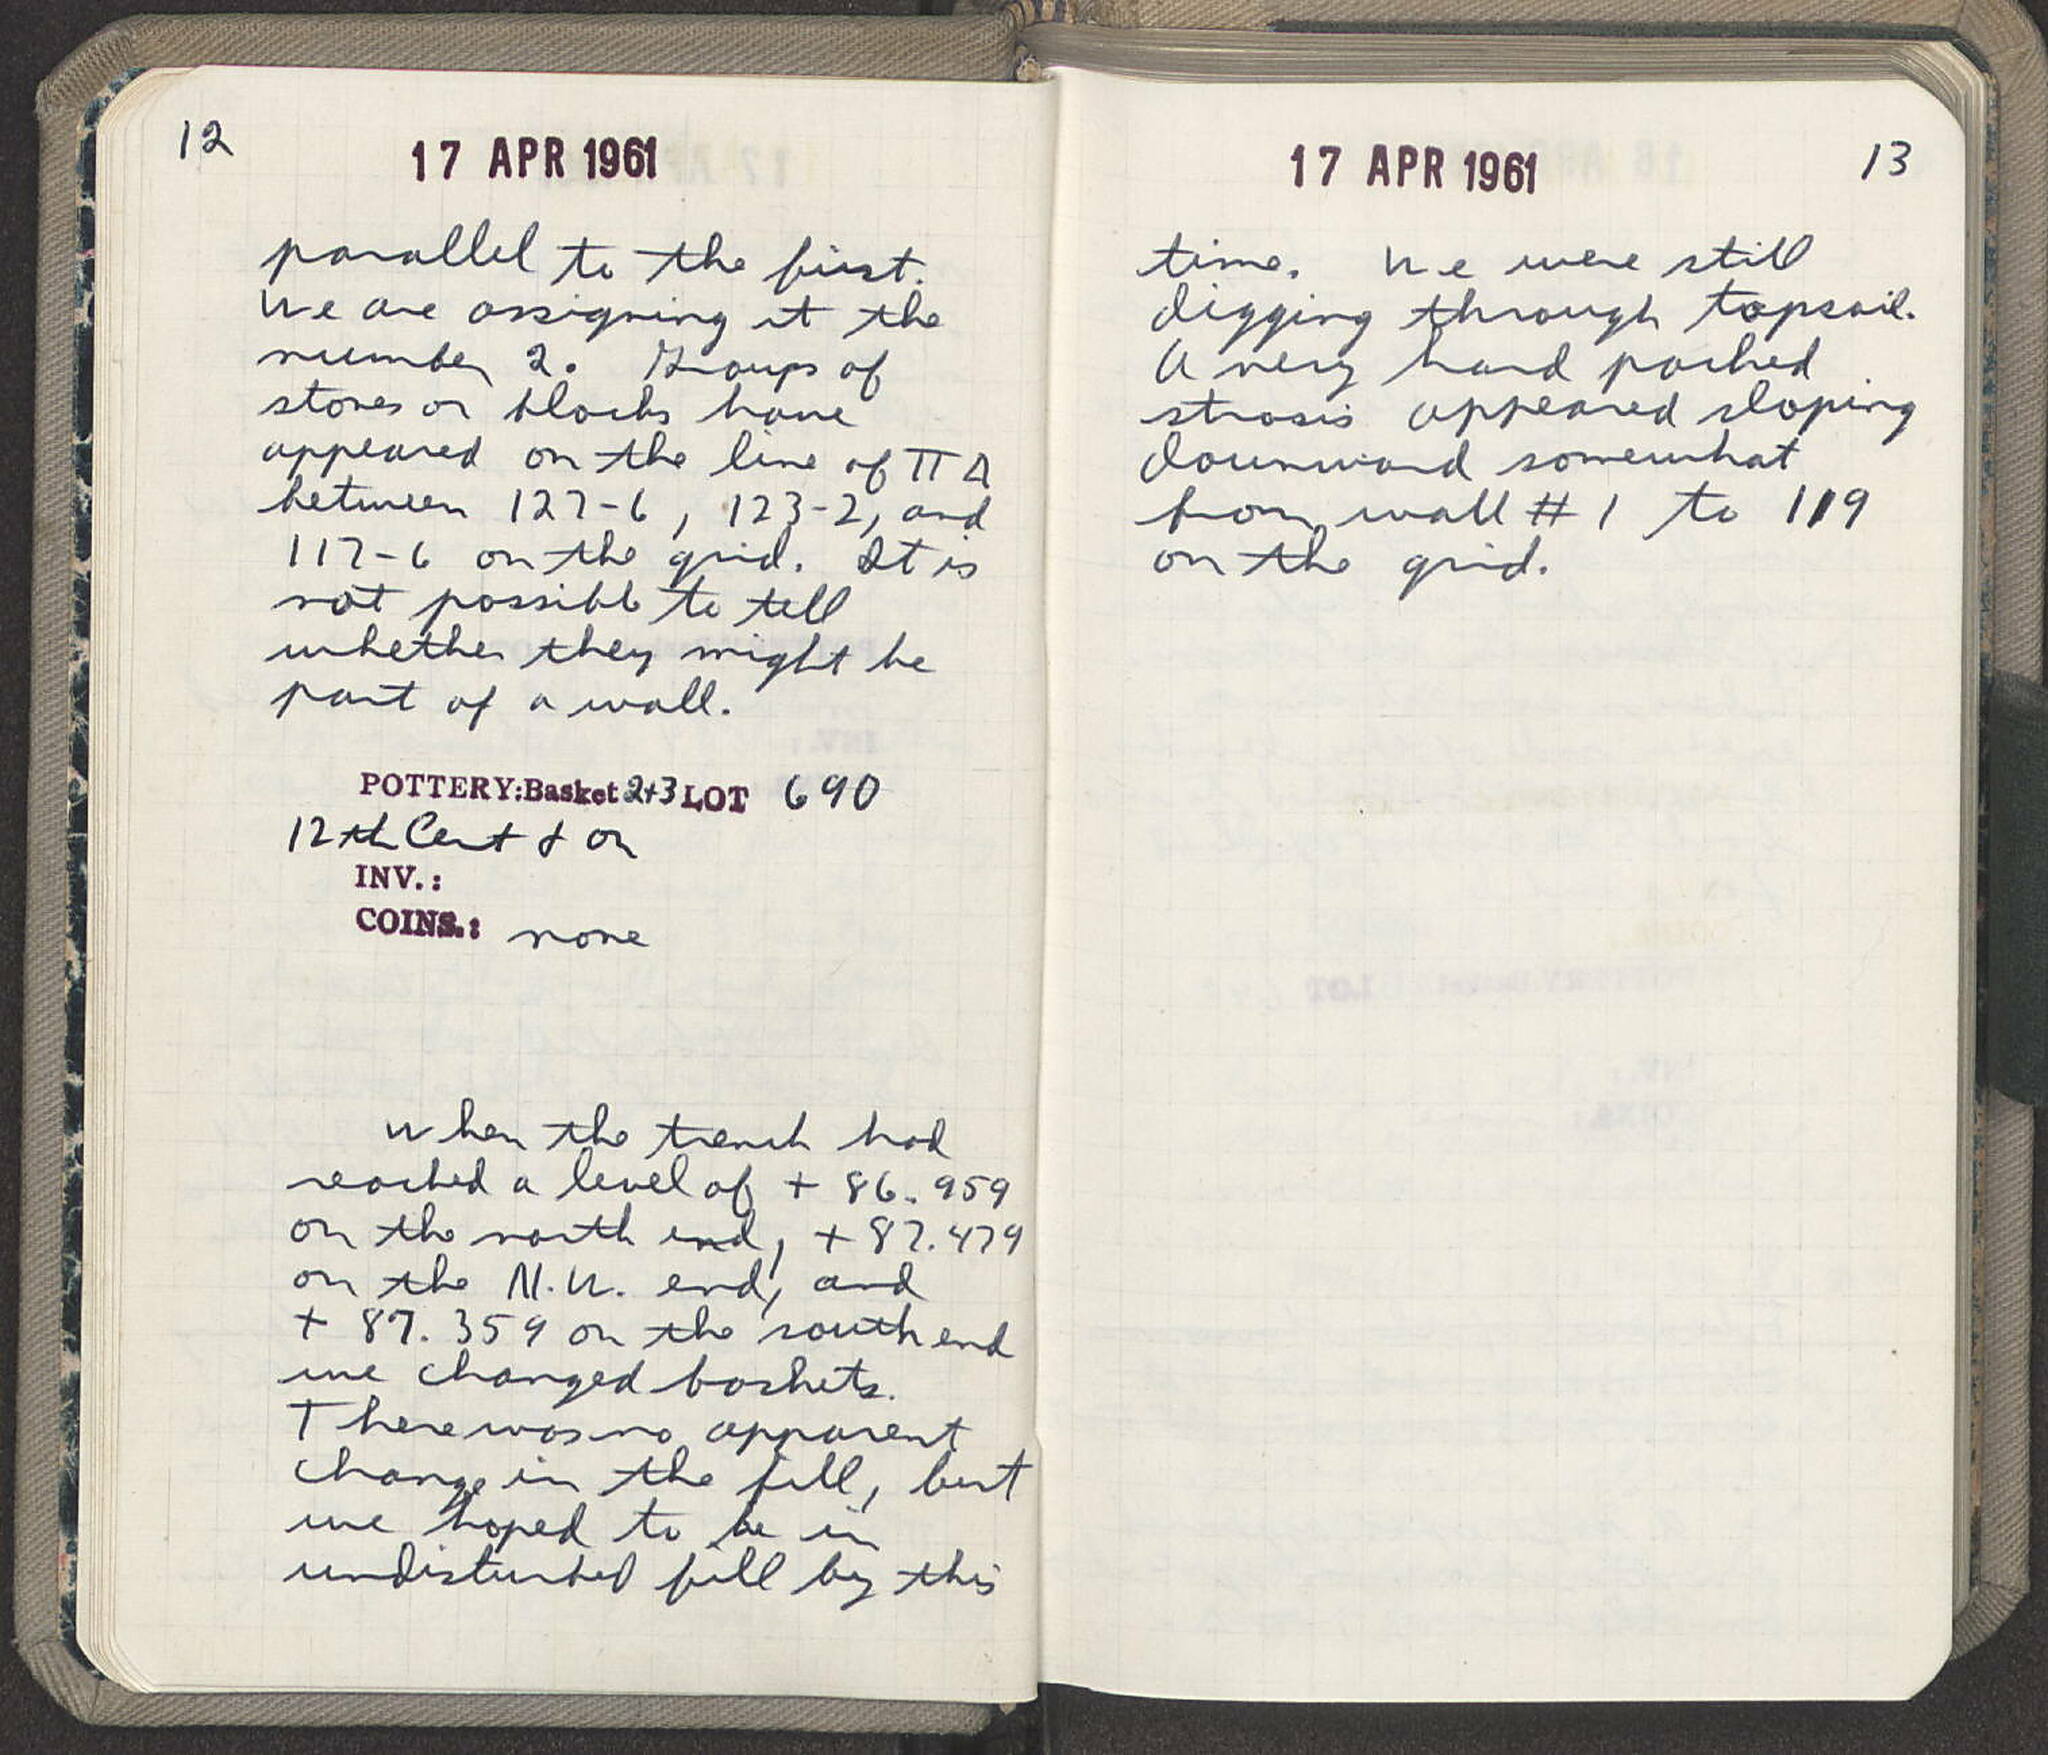 12
17 APR 1961
parallel to the first.
We are assigning it the
number 2. Groups of
stones or blocks have
appeared on the line of ΠΔ
between 127-6, 123-2, and
117-6 on the grid. It is
not possible to tell
whether they might be
part of a wall.
POTTERY: Basket 2+3 LOT 690
12th Cent & on
INV.:
COINS.: none
When the trench had
reached a level of + 86.959
on the north end, + 87.479
on the N.W. end, and
+ 87.359 on the south end
we changed baskets.
There was no apparent
change in the fill, but
we hoped to be in
undisturbed fill by this
17 APR 1961
13
time. We were still
digging through topsoil.
A very hard packed
strosis appeared sloping
downward somewhat
from wall # 1 to 119
on the grid.